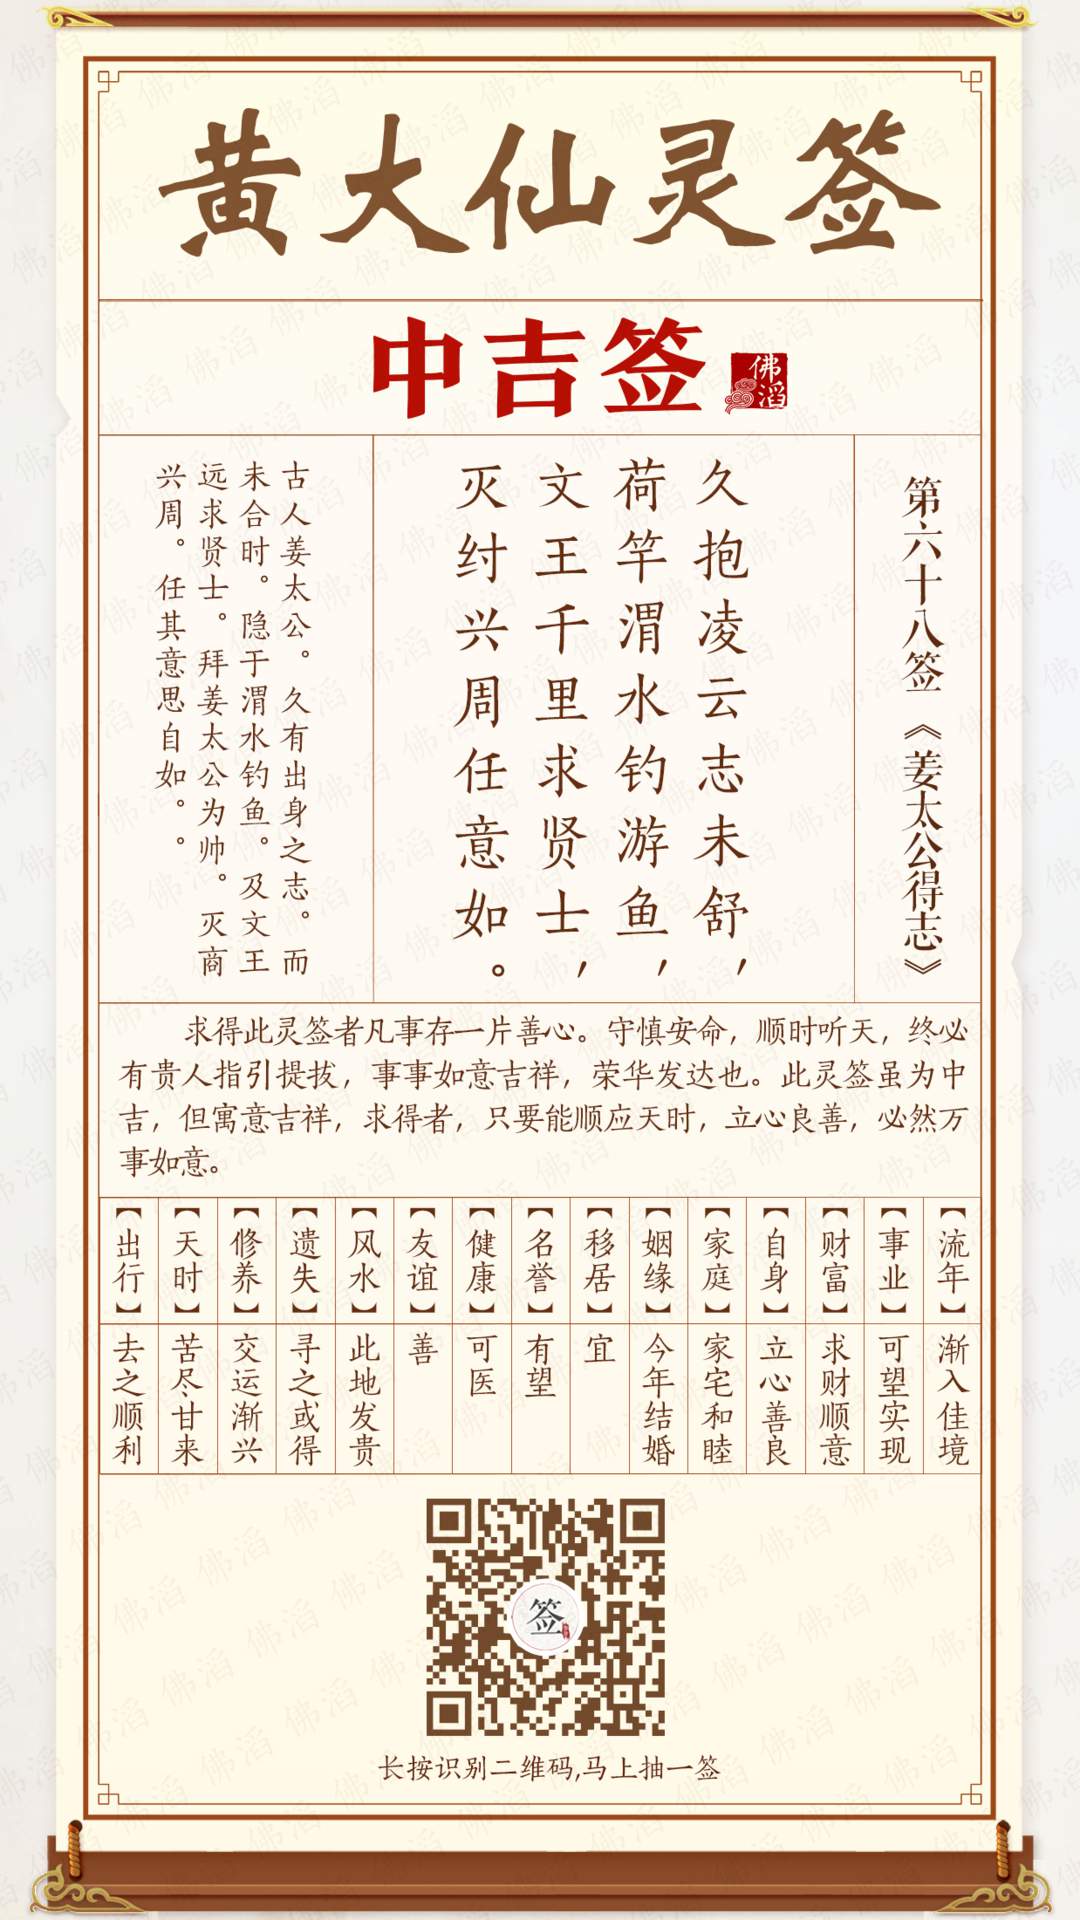 黄大仙灵签
中吉签
佛滔
第六十八签《姜太公得志》
久抱凌云志未舒，
荷竿渭水钓游鱼，
文王千里求贤士，
灭纣兴周任意如。
古人姜太公。久有出身之志。而
未合时。隐于渭水钓鱼。及文王
远求贤士。拜姜太公为帅。灭商
兴周。任其意思自如。。
求得此灵签者凡事存一片善心。守慎安命，顺时听天，终必
有贵人指引提拔，事事如意吉祥，荣华发达也。此灵签虽为中
吉，但寓意吉祥，求得者，只要能顺应天时，立心良善，必然万
事如意。
【流年】渐入佳境
【事业】可望实现
【财富】求财顺意
【自身】立心善良
【家庭】家宅和睦
【姻缘】今年结婚
【移居】宜
【名誉】有望
【健康】可医
【友谊】善
【风水】此地发贵
【遗失】寻之或得
【修养】交运渐兴
【天时】苦尽甘来
【出行】去之顺利
签
长按识别二维码,马上抽一签